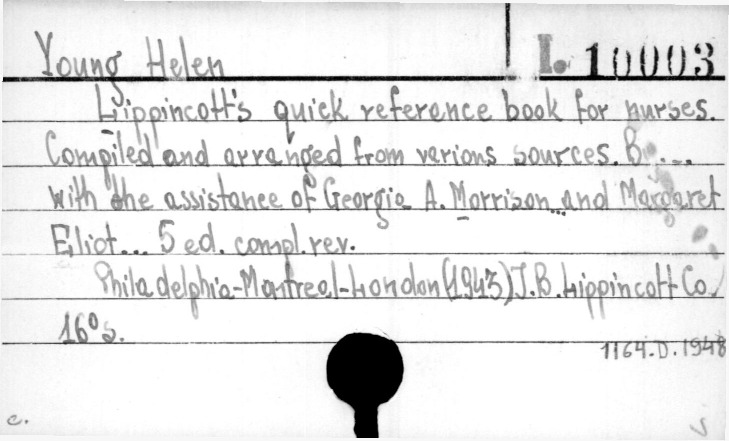 Young Helen I. 10003
Lippincott's quick reference book for nurses.
Compiled and arranged from varions sources. B....
with the assistance of Georgia A. Morrison...and Margaret
Eliot... 5 ed. compl. rev.
Philadelphia-Montreal-London (1943) J.B. Lippincott Co.
16° s.
1164.D.1948
c.